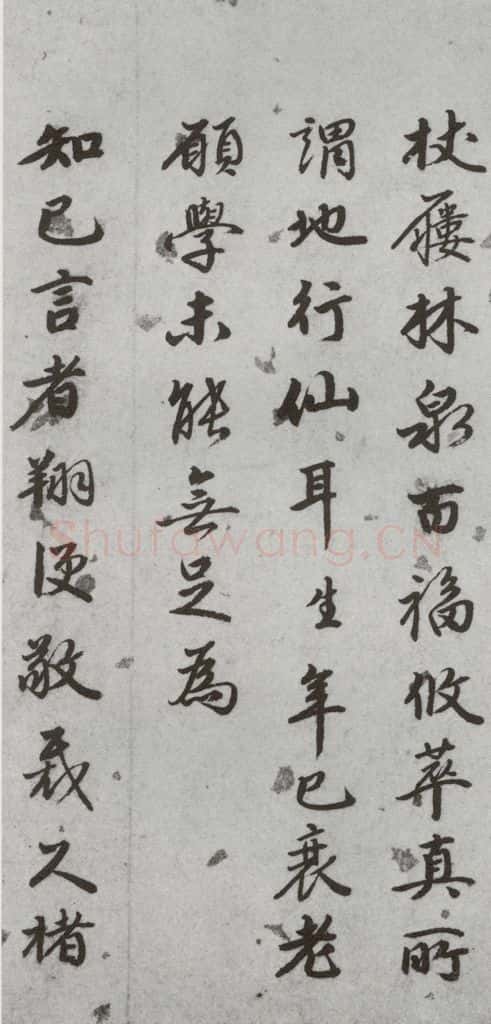 杖屨林泉百福攸萃真所
謂地行仙耳生年已衰老
願學未能無足為
知己言者翔便敬裁尺楮
Shufawang.CN